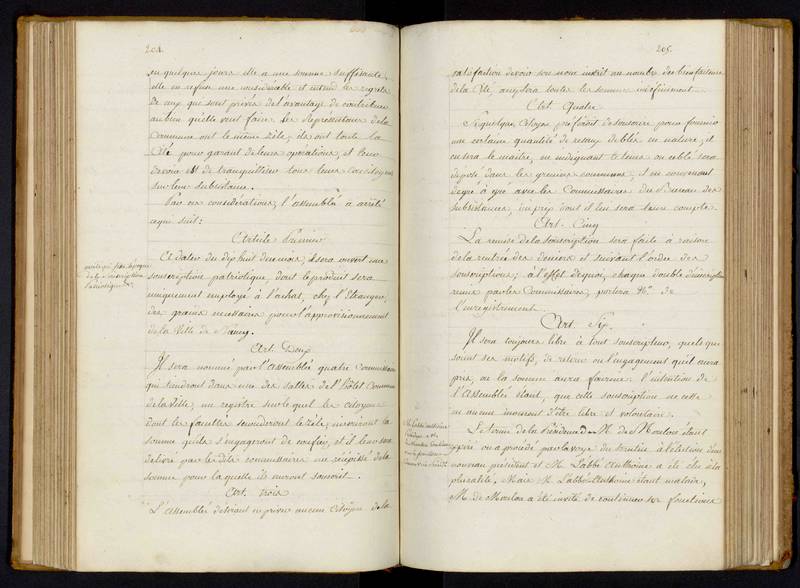 204.
en quelques jours elle a une somme suffisante,
elle en refuse une considérable et entend les regrets
de ceux qui sont privés de l'avantage de contribuer
au bien qu'elle veut faire. Les Représentans de la
Commune ont le même zèle; ils ont toute la
Cité pour garant de leurs opérations, et leur
devoir est de tranquilliser tous leurs concitoyens
sur leur subsistance.
Par ces considérations, l'assemblée a arrêté
ce qui suit:
Article Premier
A dater du dix huit du mois, il sera ouvert une
souscription patriotique, dont le produit sera
uniquement employé à l'achat, chez l'Etranger,
des grains nécessaires pour l'approvisionnement
de la Ville de Nancy.
Art. Deux
Il sera nommé par l'assemblée quatre Commissaires
qui tiendront dans une des salles de l'hôtel Commun
de la Ville, un registre sur lequel les citoyens
dont les facultés seconderont le zèle, inscriront la
somme qu'ils s'engageront de confier, et il leur sera
délivré par les dits commissaires un récépissé de la
somme pour laquelle ils auront souscrit.
Art. trois
L'assemblée désirant ne priver aucun Citoyen de la
205.
satisfaction de voir son nom inscrit au nombre des bienfaiteurs
de la Cité, acceptera toutes les sommes indéfiniment.
Art. Quatre
Si quelque Citoyen préféroit de souscrire pour fournir
une certaine quantité de resaux de bled, en nature, il
en sera le maitre, en indiquant le tems où ce bled sera
déposé dans les greniers communs, et en convenant
de gré à gré avec les Commissaires du Bureau des
subsistances, du prix dont il lui sera tenu compte.
Art. Cinq
La remise de la souscription sera faite à raison
de la rentrée des deniers et suivant l'ordre des
souscriptions; à l'effet de quoi, chaque double d'inscription
remis par les Commissaires, portera N.º de
l'enregistrement.
Art. Six
Il sera toujours libre à tout souscripteur, quels que
soient ses motifs, de retirer ou l'engagement qu'il aura
pris, ou la somme qu'il aura fournie: l'intention de
l'assemblée étant, que cette souscription ne cesse
en aucun moment d'être libre et volontaire.
Le terme de la Présidence de M. de Moulon étant
expiré on a procédé par la voye du Scrutin à l'élection d'un
nouveau président et M. l'abbé Anthoine a été élu à la
pluralité. Mais M. l'abbé Anthoine étant malade,
M. de Moulon a été invité de continuer ses fonctions